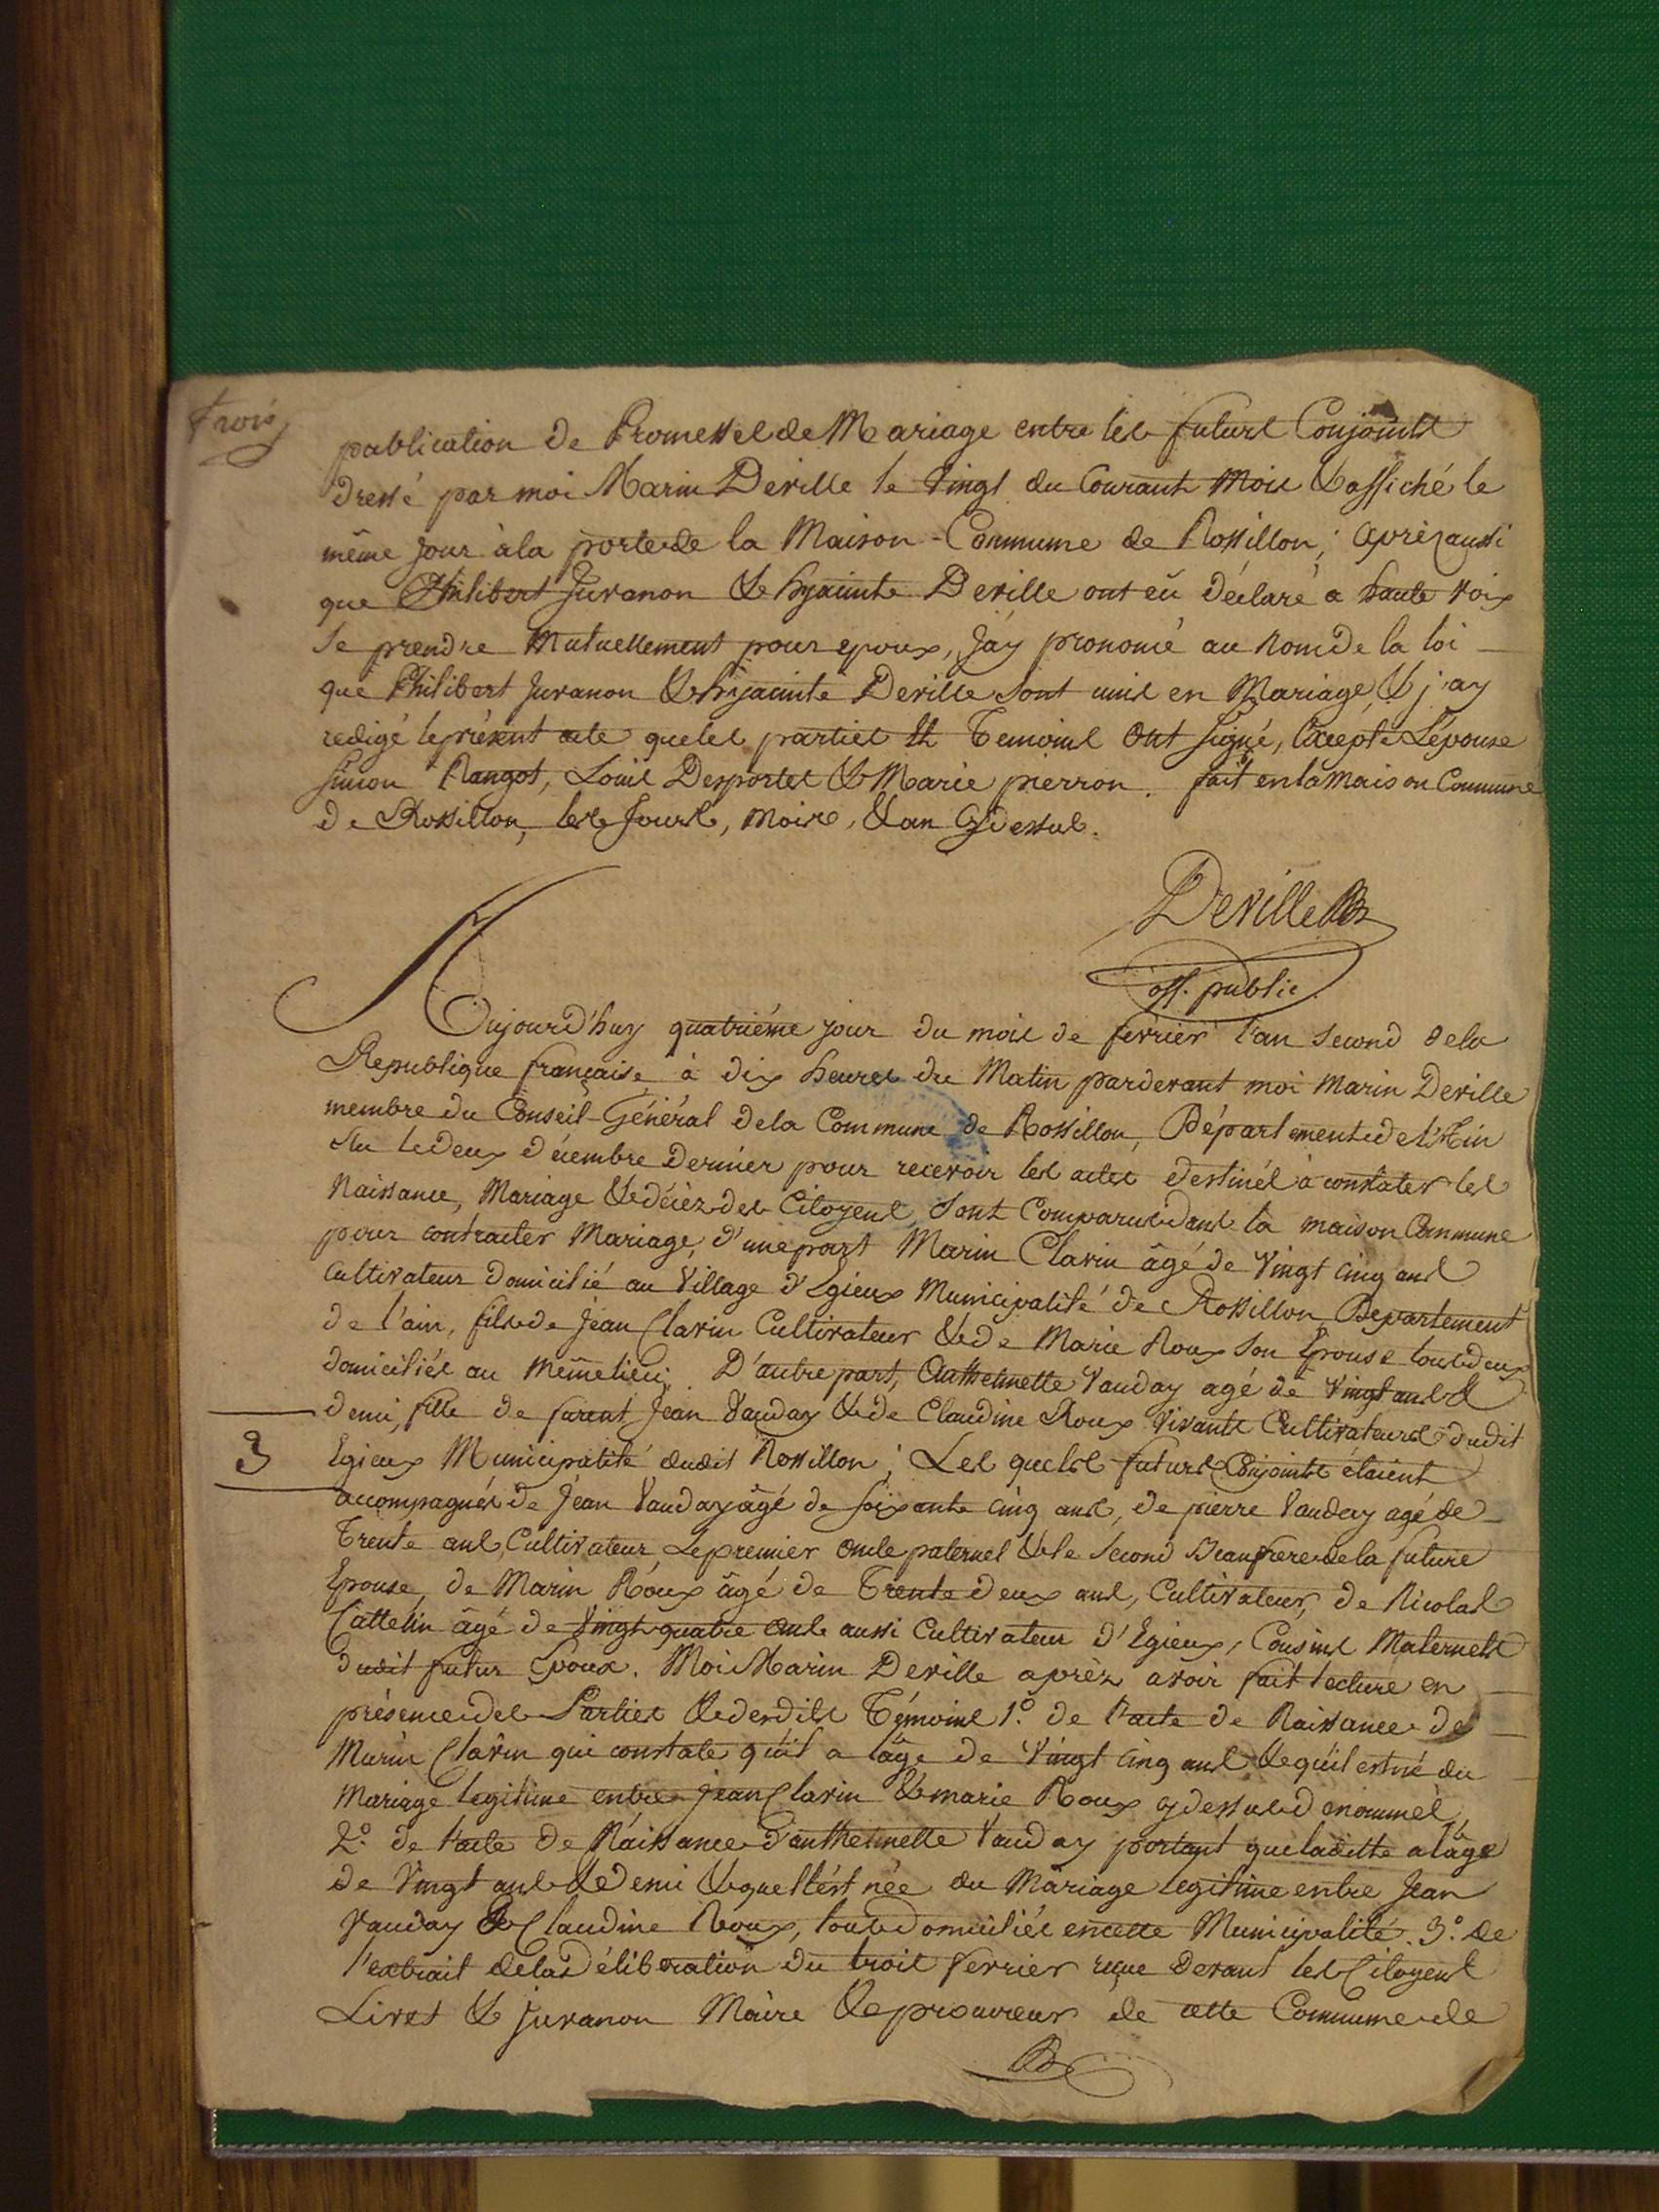 Trois
publication de Promesses de Mariage entre les futurs Conjoints
dressé par moi Marin Deville le Vingt du Courant Mois & affiché le
même jour à la porte de la Maison-Commune de Rossillon; après aussi
que Philibert Juvanon & hyacinte Deville ont eû déclaré a haute voix
Se prendre Mutuellement pour epoux, J'ay prononcé au nom de la loi
que Philibert Juvanon & hyacinte Deville Sont unis en Mariage, & j'ay
redigé le présent acte que les parties & Temoins Ont signé, Excepté L'épouse
Simon Rangot, Louis Desportes & Marie pierron. fait en la Maison Commune
de Rossillon, les Jours, Mois, & an Cydessus.
Deville
off. public
Aujourd'huy quatriéme jour du mois de fevrier l'an second de la
Republique française à dix heures du Matin pardevant moi Marin Deville
membre du Conseil-Général de la Commune de Rossillon, Département de l'Ain
élu le deux décembre dernier pour recevoir les actes destinés à constater les
Naissance, Mariage & décèz des Citoyens, Sont Comparus dans la maison Commune
pour contracter Mariage, d'une part Marin Clavin âgé de Vingt cinq ans
Cultivateur domicilié au Village d'Egieux Municipalité de Rossillon Departement
de l'ain, fils de Jean Clavin Cultivateur & de Marie Roux Son Epouse tous deux
domiciliés au Même lieu; D'autre part, Anthelmette Vauday agé de Vingt ans &
demi, fille de furent Jean Vauday & de Claudine Roux Vivants Cultivateurs dudit
3
Egieux Municipalité dudit Rossillon; Les quels futurs Conjoints étaient
accompagnés de Jean Vauday âgé de soixante cinq ans, de pierre Vauday agé de
Trente ans, Cultivateur, Le premier oncle paternel & le Second Beaufrere de la future
Epouse, de Marin Roux âgé de Trente deux ans, Cultivateur, de Nicolas
Cattelin âgé de Vingt quatre ans aussi Cultivateur d'Egieux, Cousins Maternels
dudit futur Epoux. Moi Marin Deville aprèz avoir fait lecture en
présence des Parties & desdits Témoins 1.° de l'acte de Naissance de
Marin Clavin qui constate qu'il a lâge de Vingt cinq ans & qu'il est né du
Mariage legitime entre Jean Clavin & marie Roux cydessus denommés,
2.° de l'acte de Naissance d'anthelmette Vauday portant que ladite a lâge
de Vingt ans & demi & quell'est née du Mariage legitime entre Jean
Vauday & Claudine Roux, tous domiciliés en cette Municipalité. 3.° de
l'extrait de la Déliberation du trois fevrier reçue devant les Citoyens
Livet & Juvanon Maire & procureur de cette Commune de